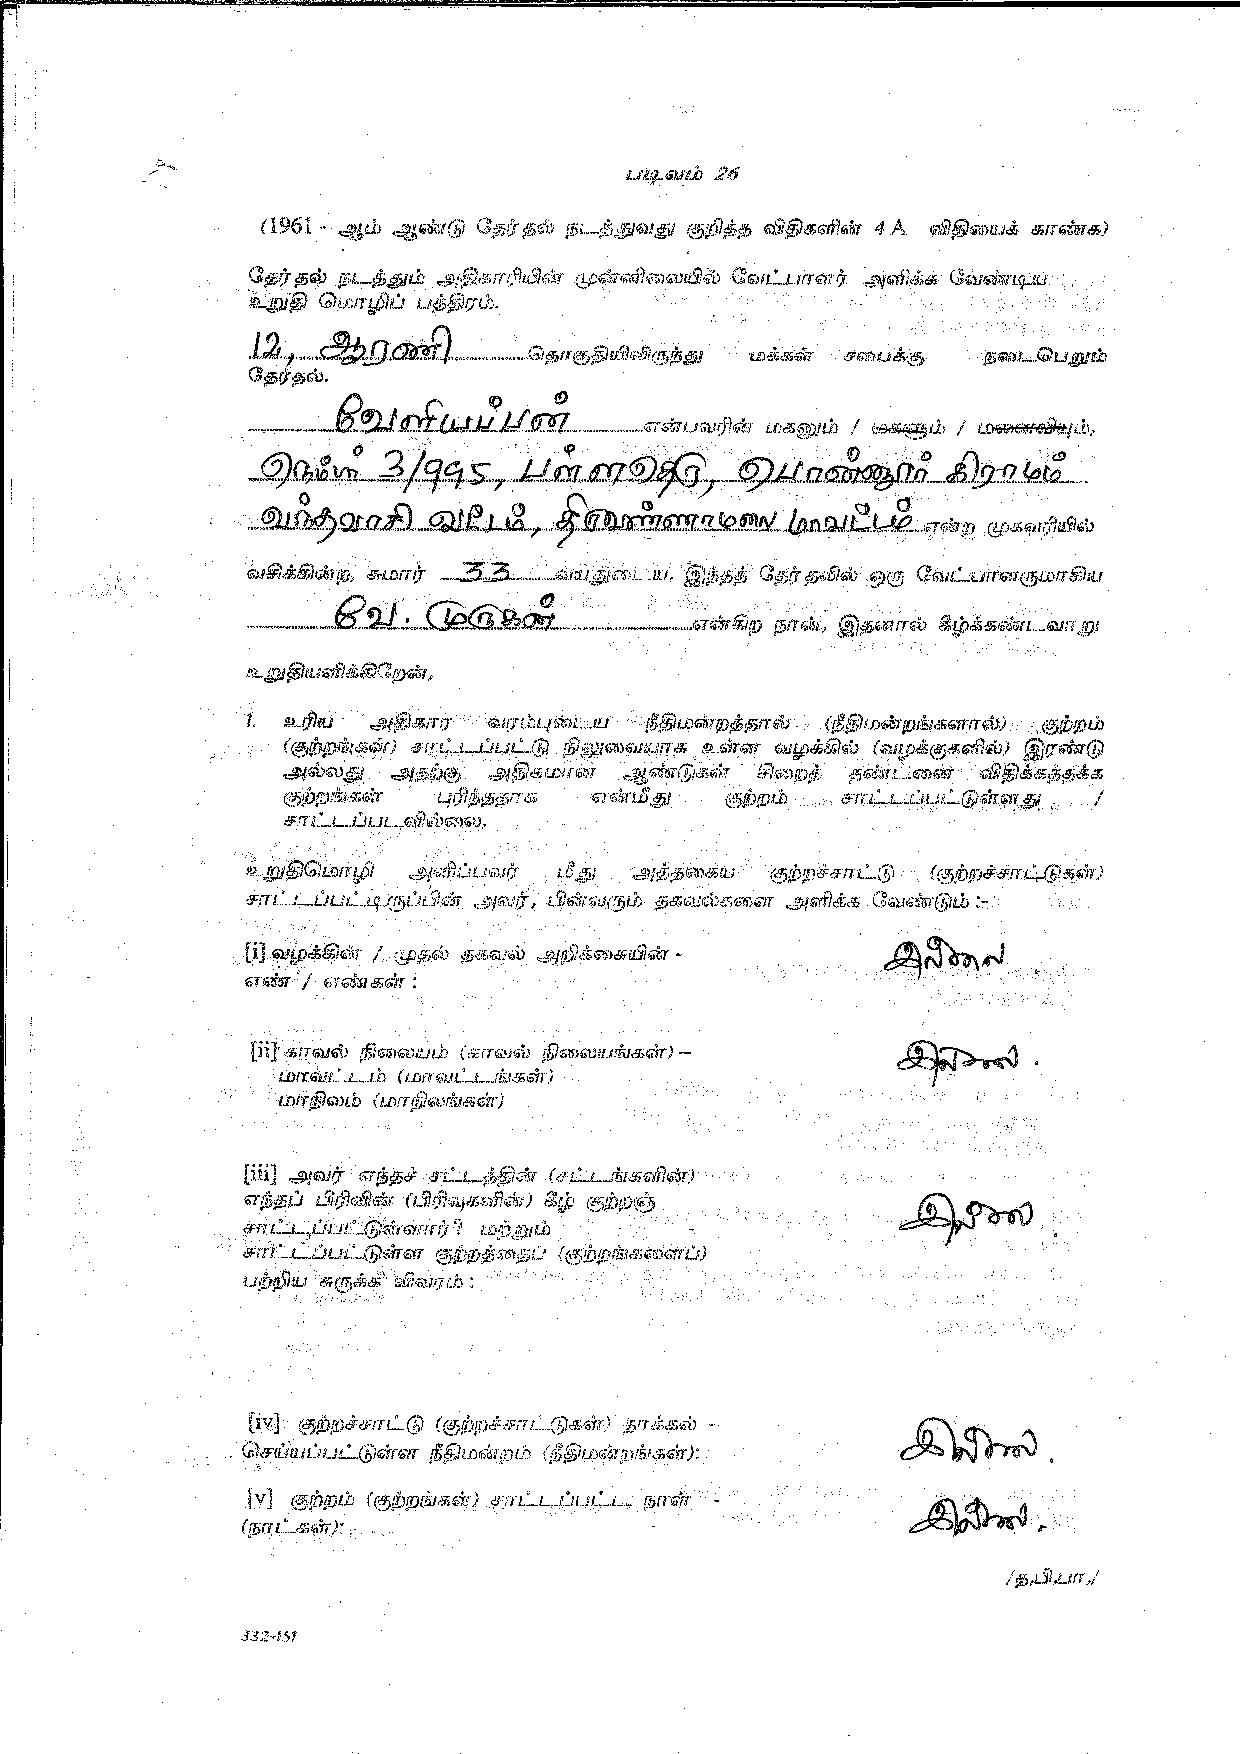 படிவம் 26
(1961 - ஆம் ஆண்டு தேர்தல் நடத்துவது குறித்த விதிகளின் 4 A விதியைக் காண்க)
தேர்தல் நடத்தும் அதிகாரியின் முன்னிலையில் வேட்பாளர் அளிக்க வேண்டிய
உறுதி மொழிப் பத்திரம்.
12, ஆரணி தொகுதியிலிருந்து மக்கள் சபைக்கு நடைபெறும்
தேர்தல்.
வேளியப்பன் என்பவரின் மகனும் / மகளும் / மனைவியும்,
நெம்பர் 3/995, பள்ளதெரு, பொன்னூர் கிராமம்
வந்தவாசி வட்டம், திருவண்ணாமலை மாவட்டம் என்ற முகவரியில்
வசிக்கின்ற, சுமார் 33 வயதுடைய, இந்தத் தேர்தலில் ஒரு வேட்பாளருமாகிய
வே. முருகன் என்கிற நான், இதனால் கீழ்க்கண்டவாறு
உறுதியளிக்கிறேன்,
1. உரிய அதிகார வரம்புடைய நீதிமன்றத்தால் (நீதிமன்றங்களால்) குற்றம்
(குற்றங்கள்) சாட்டப்பட்டு நிலுவையாக உள்ள வழக்கில் (வழக்குகளில்) இரண்டு
அல்லது அதற்கு அதிகமான ஆண்டுகள் சிறைத் தண்டனை விதிக்கத்தக்க
குற்றங்கள் புரிந்ததாக என்மீது குற்றம் சாட்டப்பட்டுள்ளது /
சாட்டப்படவில்லை.
உறுதிமொழி அளிப்பவர் மீது அத்தகைய குற்றச்சாட்டு (குற்றச்சாட்டுகள்)
சாட்டப்பட்டிருப்பின் அவர், பின்வரும் தகவல்களை அளிக்க வேண்டும் :-
[i] வழக்கின் / முதல் தகவல் அறிக்கையின் - இல்லை
எண் / எண்கள் :
[ii] காவல் நிலையம் (காவல் நிலையங்கள்) – இல்லை.
மாவட்டம் (மாவட்டங்கள்)
மாநிலம் (மாநிலங்கள்)
[iii] அவர் எந்தச் சட்டத்தின் (சட்டங்களின்)
எந்தப் பிரிவின் (பிரிவுகளின்) கீழ் குற்றஞ் இல்லை
சாட்டப்பட்டுள்ளார்? மற்றும்
சாட்டப்பட்டுள்ள குற்றத்தைப் (குற்றங்களைப்)
பற்றிய சுருக்க விவரம் :
[iv] குற்றச்சாட்டு (குற்றச்சாட்டுகள்) தாக்கல் - இல்லை.
செய்யப்பட்டுள்ள நீதிமன்றம் (நீதிமன்றங்கள்):
[v] குற்றம் (குற்றங்கள்) சாட்டப்பட்ட நாள் - இல்லை.
(நாட்கள்):
/த.பி.பா./
332-151